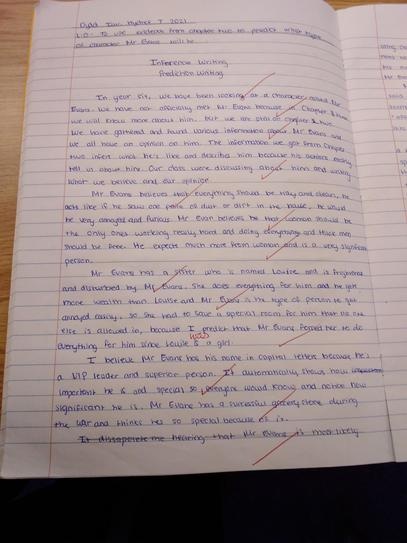 L.O: To use evidence from chapter two to predict what type
of character Mr Evans will be.
Inference Writing
Prediction Writing
In year six, we have been looking at a character named Mr
Evans. We have not officially met Mr Evans because in Chapter 3
we will know more about him. But we are still on Chapter two.
We have gathered and found various information about Mr Evans and
we all have an opinion on him. The information we got from Chapter
two infers what he's like and describes him because his sister
tell us about him. Our class were discussing about him and writing
what we believe and our opinion.
Mr Evans believes that everything should be tidy and clean, he
acts like if he saw one piece of dust or dirt in the house, he would
be very annoyed and furious. Mr Evan believes that woman should be
the only ones working really hard and doing everything and that men
should be free. He expects much more from woman and is a very significant
person.
Mr Evans has a sister who is named Louise and is frightened
and disturbed by Mr Evans. She does everything for him and he gets
more wealth than Louise and Mr Evans is the type of person to get
annoyed easily, so she had to save a special room for him that no one
else is allowed in, because I predict that Mr Evans forced her to do
everything for him since Louise is a girl.
I believe Mr Evans has his name in capital letters because he's
a VIP leader and superior person. It automatically shows how
important he is and special so everyone would know and notice how
significant he is. Mr Evans has a sucessful grocery store during
the war and thinks hes so special because of it.
It dissaperate me hearing that Mr Evans is most likely